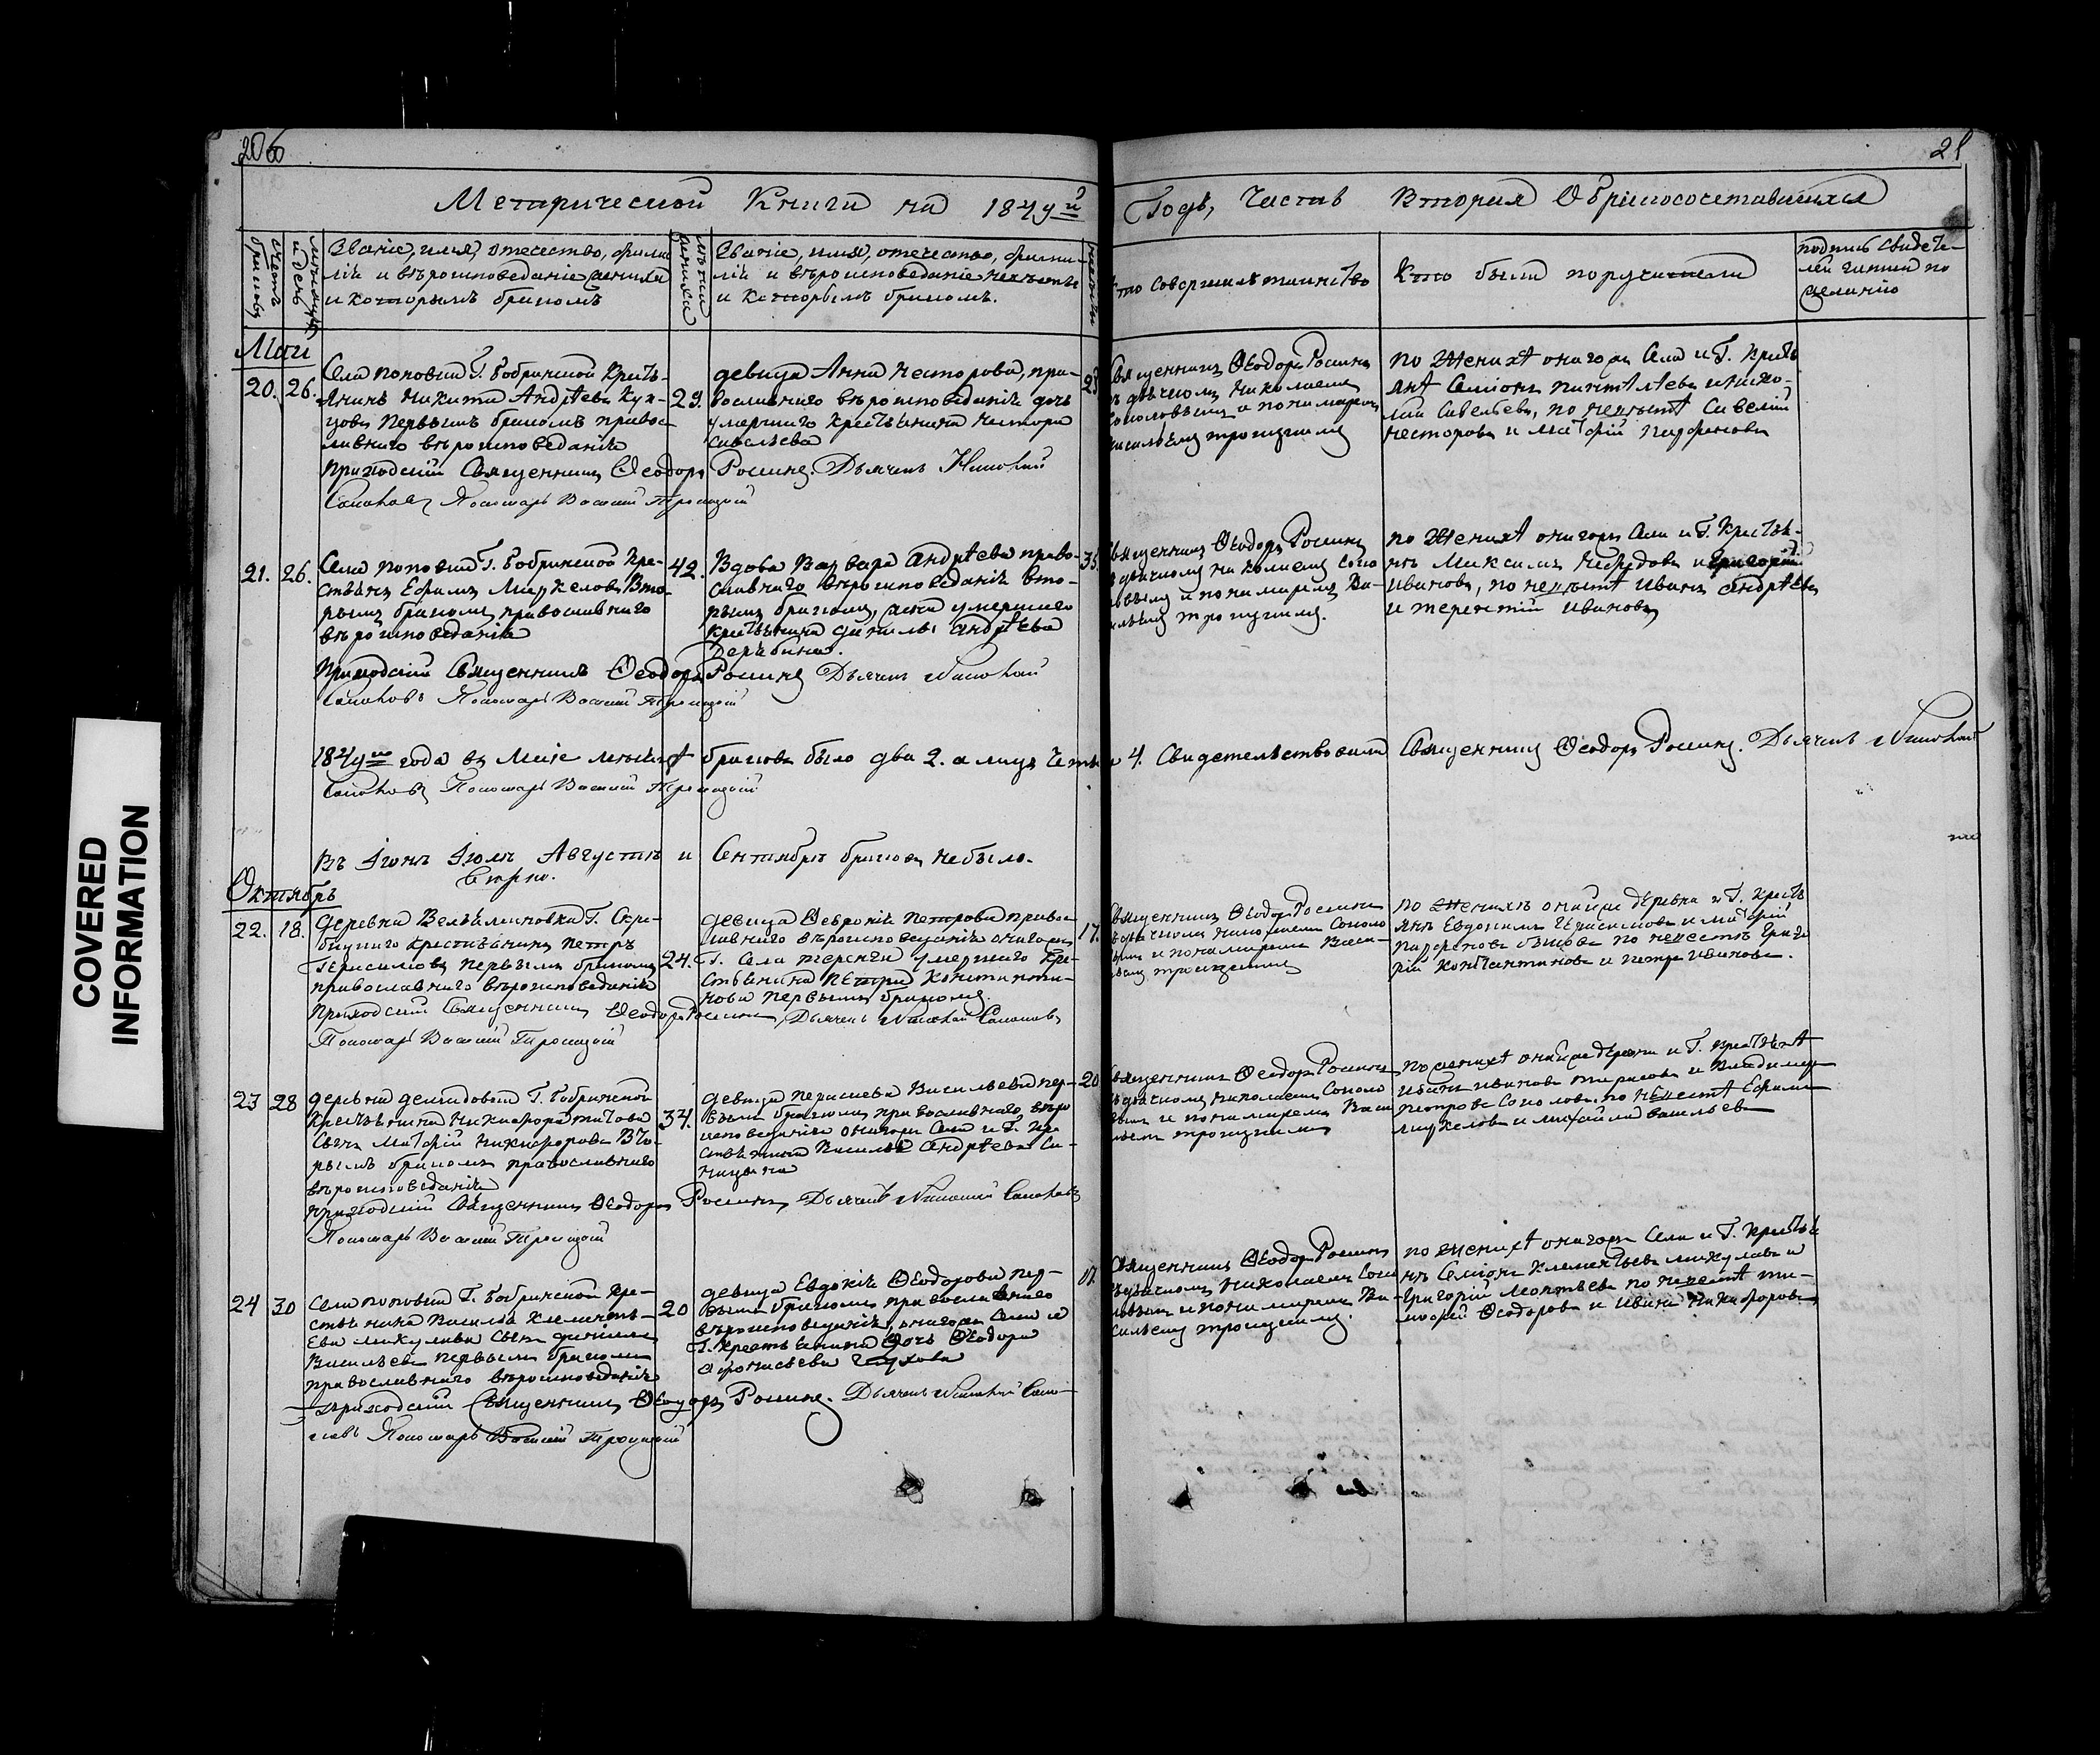 206
21
Метрической Книги на 184у й
Годъ, Часть Вторая О бракосочетавшихся
счетъ браковъ
мѣсяцъ и день
Званіе, имя, отечество, фами-
лія и вѣроисповеданіе жениха
и которымъ бракомъ
лѣта жениха
Званіе, имя, отечество, фами-
лія и вѣроисповеданіе невѣсты
и которымъ бракомъ.
Кто совершалъ таинство
Кто были поручители
подпись свидете-
лей записи по
желанію
Май
20. 26.
Села поповки Г. Бобринской Крестъ-
янинъ Никита Андрѣевъ Куз-
цовъ Первымъ бракомъ правос
лавнаго вѣроисповеданія
29.
девица Анна Несторова, пра-
вославнаго вѣроисповеданія дочь
умершаго Крестьянина Нестора
Савельева
23
Священникъ Ѳеодоръ Росинъ
съ дьячкомъ Николаемъ
Соколовымъ и пономаремъ
Василіемъ троицкимъ
по Женихѣ онагожъ Села и Г. Кресть
янѣ Семіонъ пантелѣевъ и Нико-
лай Савельевъ, по невѣстѣ Савелій
Несторовъ и Матфій Парфеновъ
Приходскій Священникъ Ѳеодоръ Росинъ. Дьячекъ Николай
Соколовъ Пономарь Василій Троицкій
21. 26.
Села поповки Г. Бобринской Кре-
стьянъ Ефимъ Маркеловъ Вто-
рымъ бракомъ православнаго
вѣроисповеданія
42.
Вдова Варвара Андрѣева право-
славнаго вѣроисповеданія вто-
рымъ бракомъ, жена умершаго
Крестьянина Данилы Андрѣева
Дерябина.
35.
Священникъ Ѳеодоръ Росинъ
съ дьячкомъ Николаемъ Соко
ловымъ и пономаремъ Ва-
сильемъ троицкимъ.
по Женихѣ онагожъ Села и Г. Крестья-
нѣ Максимъ Нефедовъ и Григорій
Ивановъ, по невѣстѣ Иванъ Андрѣевъ
и терентій Ивановъ
Приходскій Священникъ Ѳеодоръ Росинъ Дьячекъ Николай
Соколовъ Пономарь Василій Троицкій
184у го года въ Маіе месяцѣ браковъ было два 2. а лицъ Четыре 4. Свидетельствовали Священникъ Ѳеодоръ Росинъ. Дьячекъ Николай
Соколовъ Пономарь Василій Троицкій
Въ Іюнѣ Іюлѣ Августѣ и Сентябрѣ браковъ небыло.
Вѣрно.
Октябрь
22. 18.
деревни Вельяминовки Г.
Крестьянинъ Петръ
Герасимовъ первымъ бракомъ
православнаго вѣроисповеданія
24.
девица Февронія Петрова правос
лавнаго вѣроисповеданія онагожъ
Г. Села умершаго Кре-
стьянина Петра Константи-
нова первымъ бракомъ.
17.
Священникъ Ѳеодоръ Росинъ
съ дьячкомъ николаемъ Соколо
вымъ и пономаремъ Васи-
льемъ троицкимъ
по Женихѣ онойже деревни и Г. Кресть
янѣ Евдокимъ Герасимовъ и Матфій
Парфеновъ по невестѣ Григо
рій Константиновъ и петръ Ивановъ.
Приходскій Священникъ Ѳеодоръ Росинъ, Дьячекъ Николай Соколовъ
Пономарь Василій Троицкій
23 28
деревни Г. Бобринской
Крестьянина Никифора титова
Сынъ Матфій Никифоровъ Вто-
рымъ бракомъ православнаго
вѣроисповеданія
34.
девица Васильева пер-
вымъ бракомъ православнаго вѣро
исповеданія онагожъ Села и Г. Кре
стьянина Василья Андрѣева Си-
ницына
20
Священникъ Ѳеодоръ Росинъ
съ дьячкомъ Николаемъ Соколо
вымъ и пономаремъ Васи
льемъ троицкимъ
по женихѣ онойже деревни и Г. крестьянѣ
Иванъ Ивановъ тарасовъ и Владимеръ
петровъ Соколовъ, по невестѣ Ефимъ
маркеловъ и михайла васильевъ
приходскій Священникъ Ѳеодоръ Росинъ, Дьячекъ Николай Соколовъ
Пономарь Василій Троицкій
24 30
Села поповки Г. Бобринской Кре-
стьянина Василья Клементь-
ева микулина Сынъ данила
Васильевъ первымъ бракомъ
православнаго вѣроисповеданія
20
девица Евдокія Ѳеодорова пер-
вымъ бракомъ православнаго
вѣроисповеданія, онагожъ Села и
Г. Крестьянина дочь Ѳеодора
Афонасьева
17.
Священникъ Ѳеодоръ Росинъ
съ дьячкомъ Николаемъ Соко
ловымъ и пономаремъ Ва-
сильемъ троицкимъ.
по женихѣ онагожъ Села и Г. Крестья
нѣ Семіонъ Клементьевъ микулинъ и
Григорій Леонтьевъ по невестѣ ти-
мофей Ѳеодоровъ и Иванъ Никифоровъ
приходскій Священникъ Ѳеодоръ Росинъ. Дьячекъ Николай Соко-
ловъ Пономарь Василій Троицкій
COVERED
INFORMATION